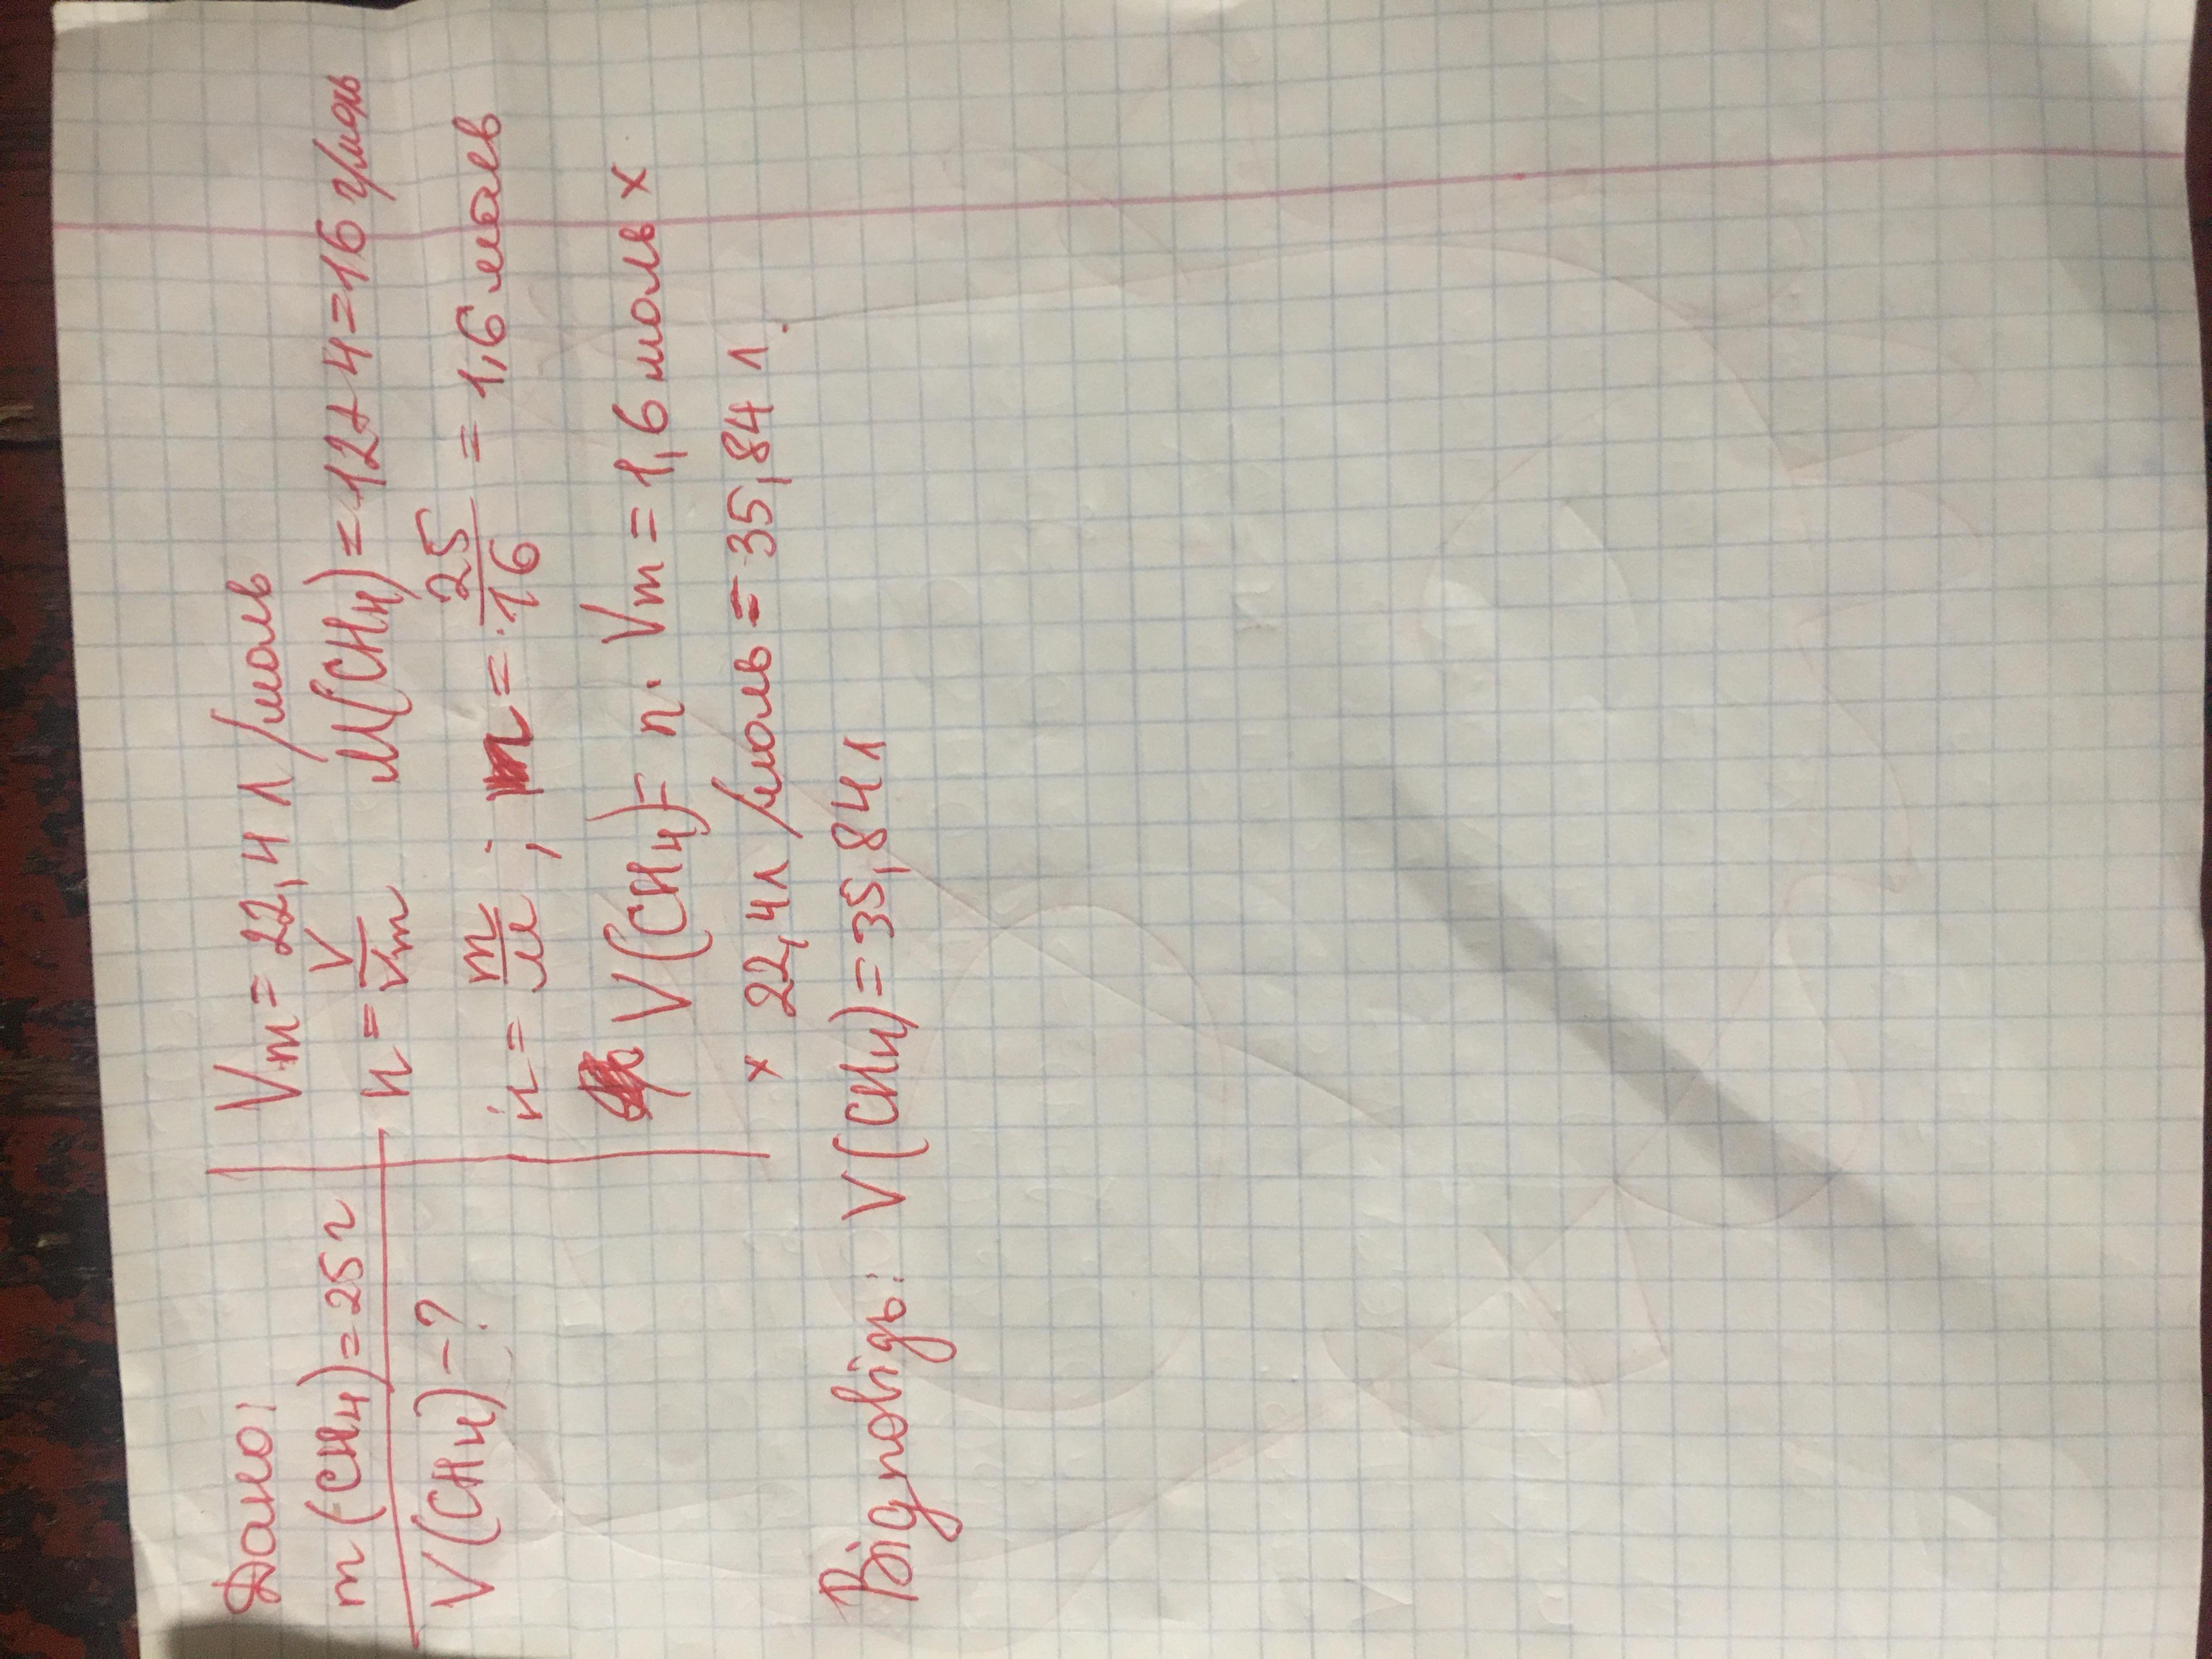 Дано:
m(CH₄)=25г
V(CH₄)-?
Vm=22,4 л/моль
n=V/Vm M(CH₄)=12+4=16 г/моль
n=m/M; n=25/16=1,6 моль
V(CH₄)=n·Vm=1,6 моль x
x 22,4л/моль=35,84 л.
Відповідь: V(CH₄)=35,84л